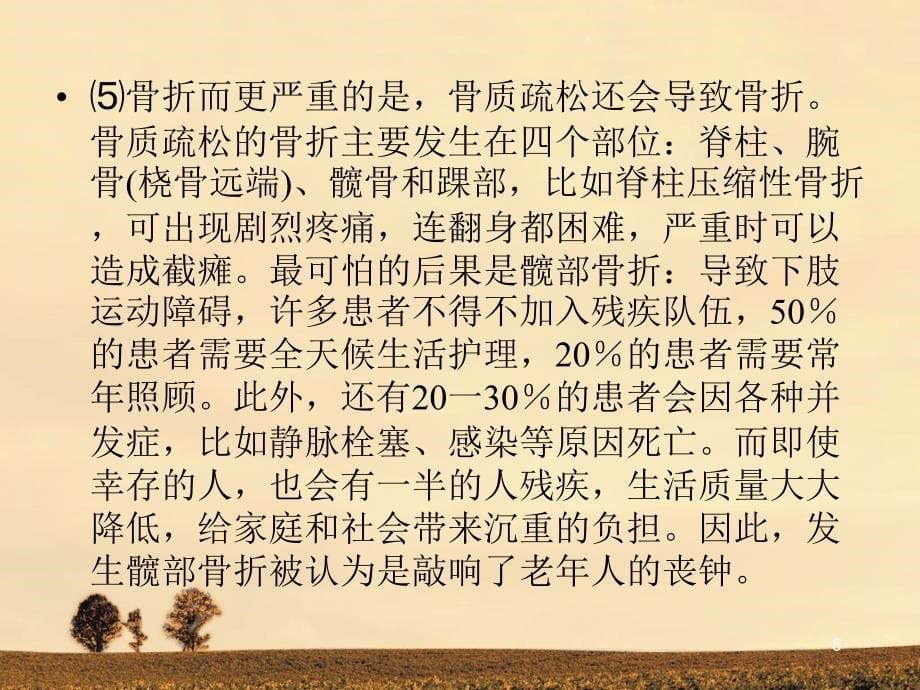 • ⑸骨折而更严重的是，骨质疏松还会导致骨折。
骨质疏松的骨折主要发生在四个部位：脊柱、腕
骨(桡骨远端)、髋骨和踝部，比如脊柱压缩性骨折
，可出现剧烈疼痛，连翻身都困难，严重时可以
造成截瘫。最可怕的后果是髋部骨折：导致下肢
运动障碍，许多患者不得不加入残疾队伍，50％
的患者需要全天候生活护理，20％的患者需要常
年照顾。此外，还有20一30％的患者会因各种并
发症，比如静脉栓塞、感染等原因死亡。而即使
幸存的人，也会有一半的人残疾，生活质量大大
降低，给家庭和社会带来沉重的负担。因此，发
生髋部骨折被认为是敲响了老年人的丧钟。
5